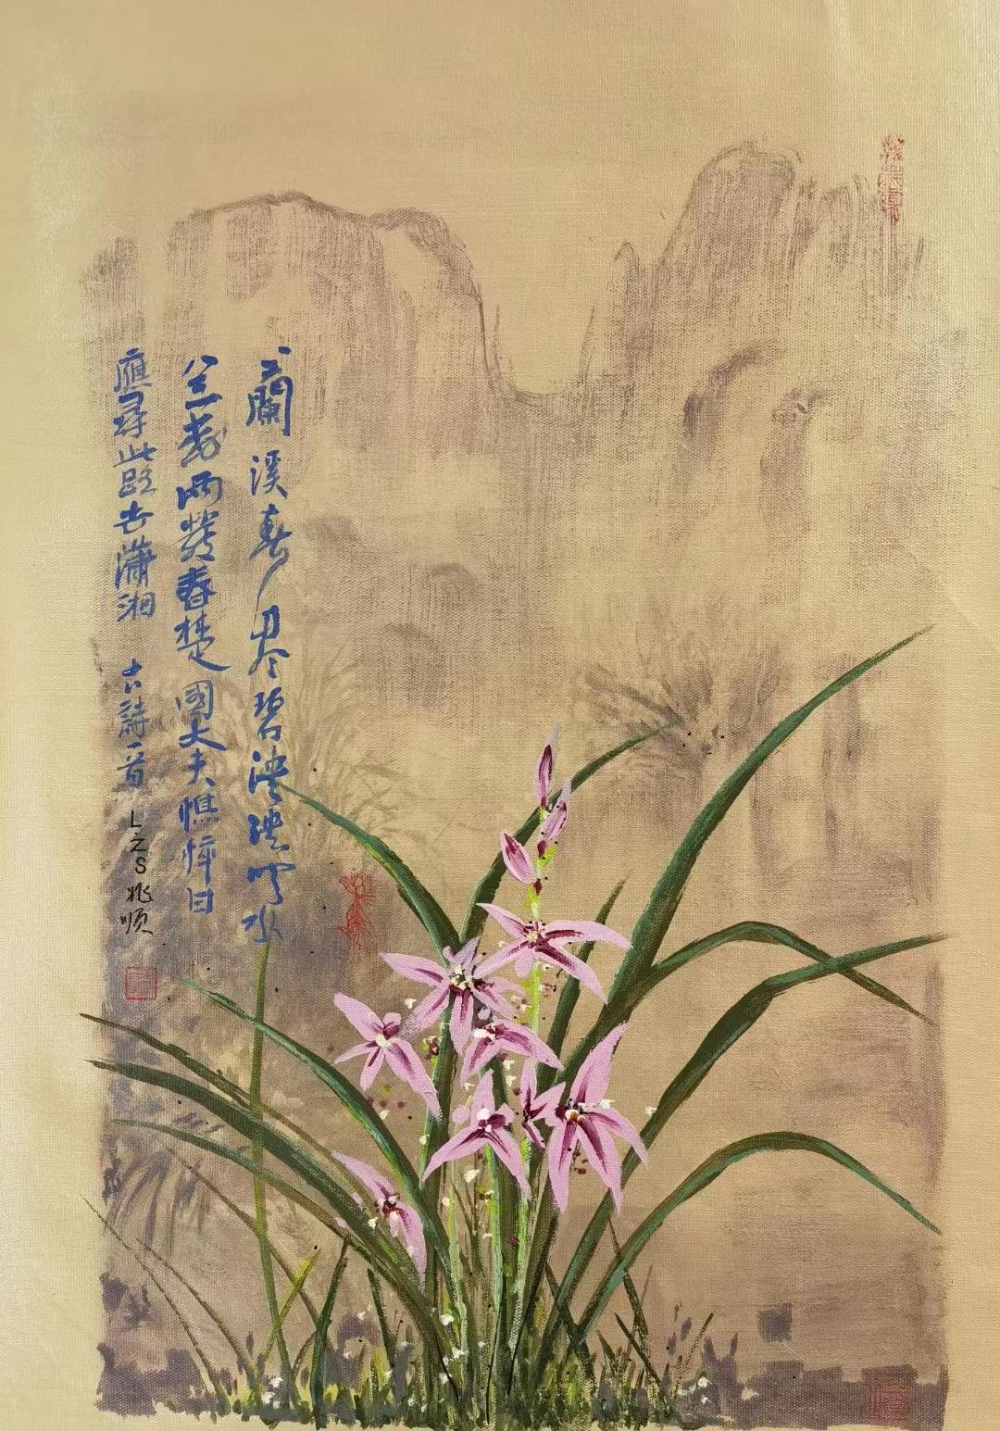 蘭溪春尽碧泱泱映水
兰花雨發香楚國大夫憔悴日
應尋此路去瀟湘 古詩一首 L之S兆顺